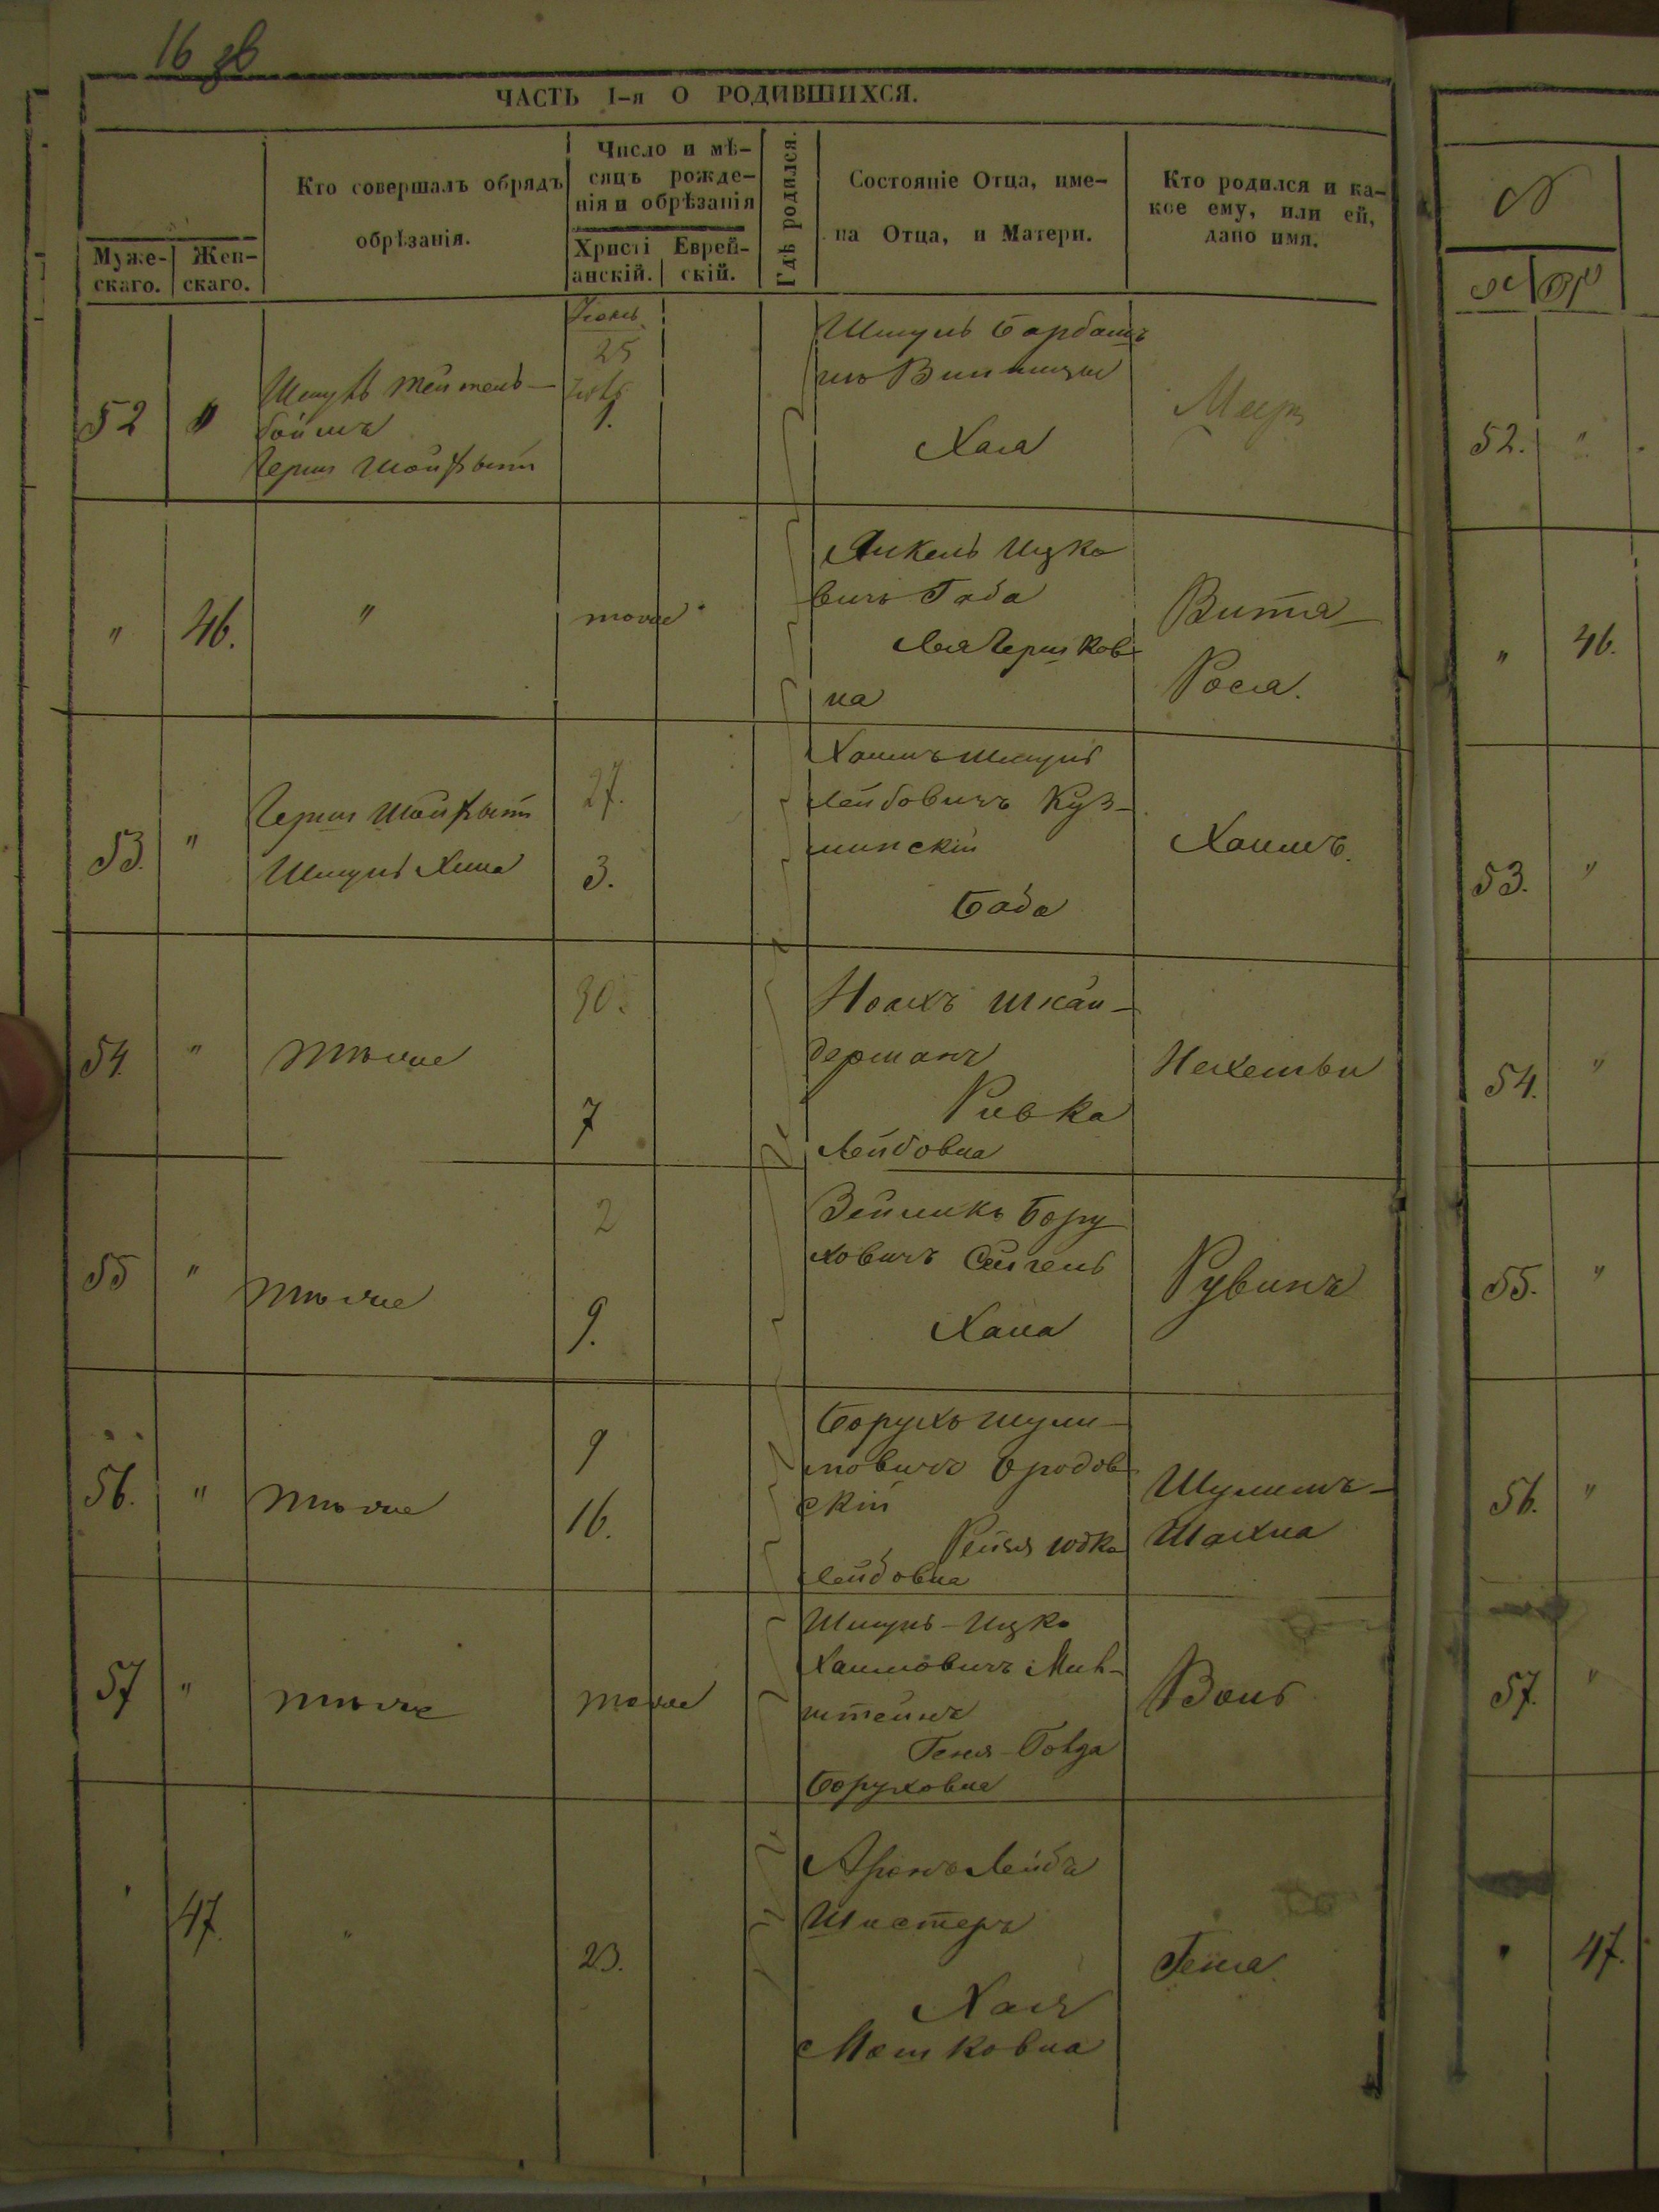 16 об
ЧАСТЬ I-я О РОДИВШИХСЯ.
Муже-
скаго.
Жен-
скаго.
Кто совершалъ обрядъ
обрѣзанія.
Число и мѣ-
сяцъ рожде-
нія и обрѣзанія
Христі
анскій.
Еврей-
скій.
Гдѣ родился.
Состояніе Отца, име-
на Отца, и Матери.
Кто родился и ка-
кое ему, или ей,
дано имя.
52 "
Шмуль Тейтель-
боймъ
Гершъ
25
1.
Шмуль Барбашъ
Хая
Меер
" 46.
"
тоже
Янкель Ицко
вичъ Габа
Лея Гершков
на
Вита
Рося.
53. "
Гершъ
Шмуль
27.
3.
Хаимъ Шмуль
Лейбовичъ Куз-
минскій
Баба
Хаимъ.
54. "
тѣже
30.
7
Ноахъ Шнай-
дерманъ
Ривка
Лейбовна
55 "
тѣже
2
9.
Зейликъ Бору
ховичъ
Хана
Рувинъ
56. "
тѣже
9
16.
Борухъ Шули-
мовичъ Бродов
скій
Рейзя Юдка
Лейбовна
Шулимъ-
Шахна
57 "
тѣже
тоже
Шмуль-Ицко
Хаимовичъ
штейнъ
Геня-Голда
Боруховна
Волъ
47.
"
23.
Аронъ Лейба
Шистеръ
Хая
Мошковна
Геня
N
52. "
" 46.
53. "
54. "
55. "
56. "
57. "
47.